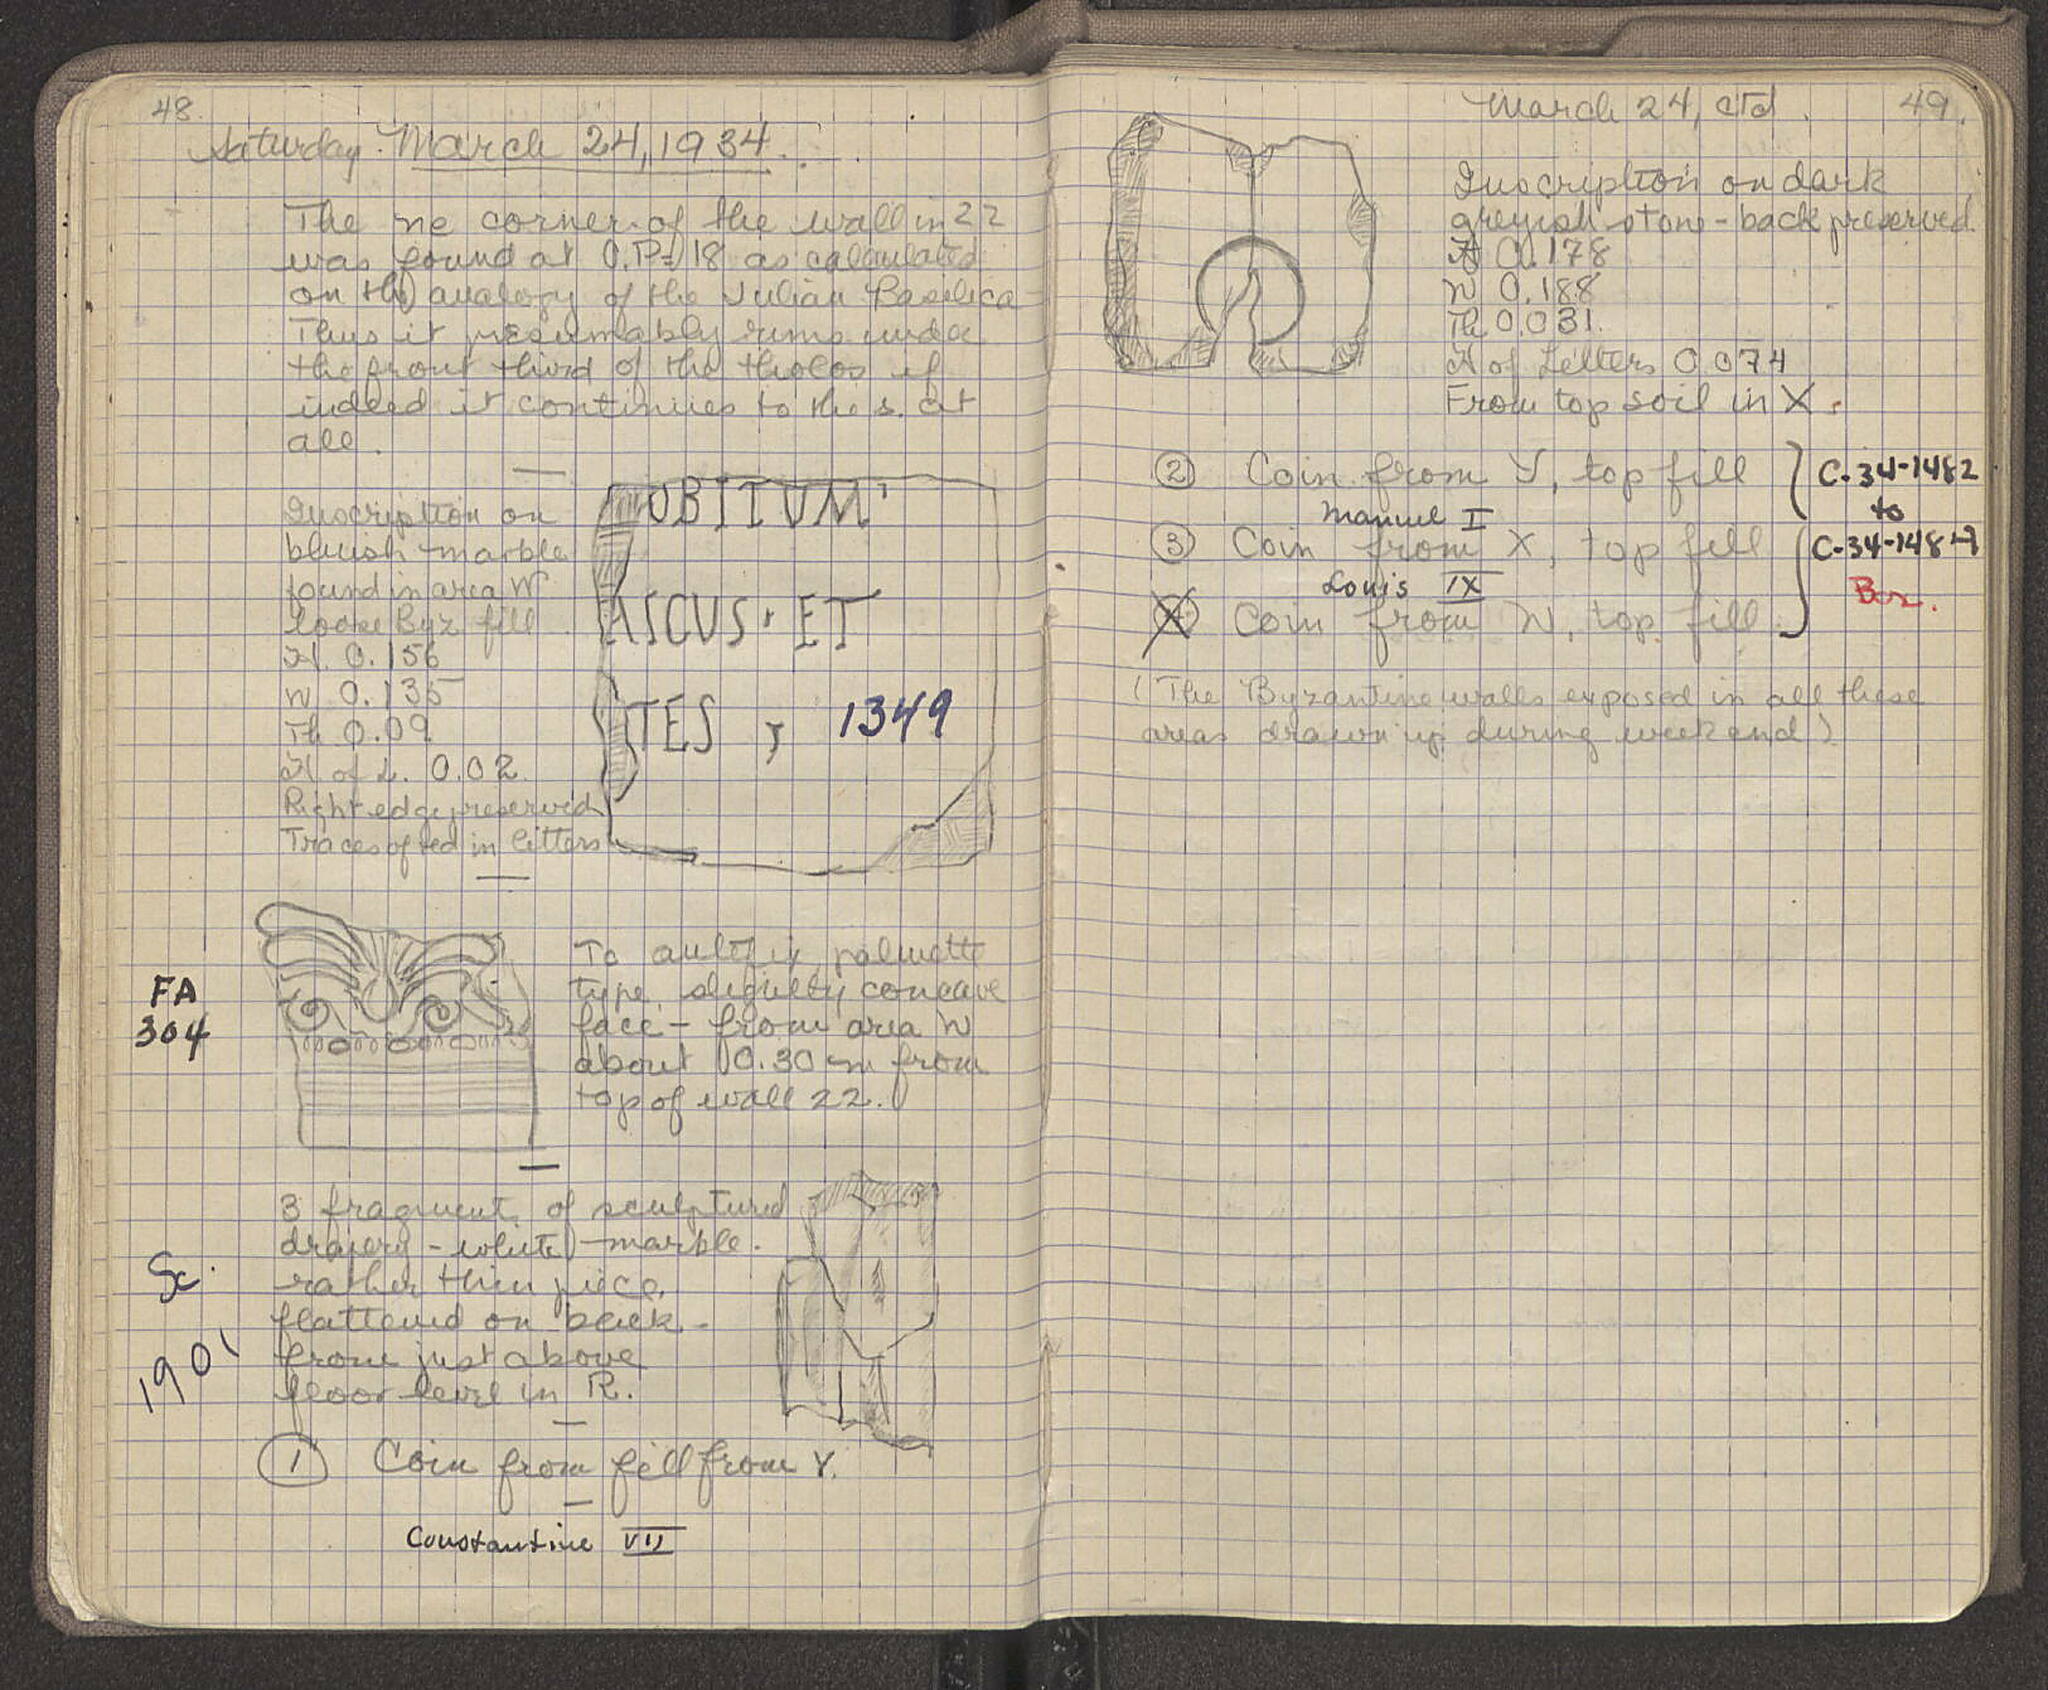 48.
Saturday March 24, 1934
The ne corner of the wall in 22
was found at O.P. 18 as calculated
on the analogy of the Julian Basilica
Thus it presumably runs under
the front third of the tholos if
indeed it continues to the s. at
all.
Inscription on
bluish marble
found in area W
loose Byz fill
H. 0.156
W 0.135
Th 0.09
H of L. 0.02
Right edge preserved
Traces of red in letters
UBITUM'
ASCUS · ET
TES ,
1349
FA
304
Tc antefix, palmette
type, slightly concave
face - from area W
about 0.30 m from
top of wall 22.
Sc.
1901
3 fragments of sculptured
drapery - white marble.
rather thin piece,
flattened on back -
from just above
floor level in R.
1 Coin from fill from Y.
Constantine VII
March 24, ctd.
49.
Inscription on dark
greyish stone - back preserved.
H 0.178
W 0.188
Th 0.031.
H of Letters 0.074
From top soil in X.
2 Coin from Y, top fill
Manuel I
3 Coin from X, top fill
Louis IX
4 Coin from W, top fill
C-34-1482
to
C-34-1484
(The Byzantine walls exposed in all these
areas drawn up during weekend)